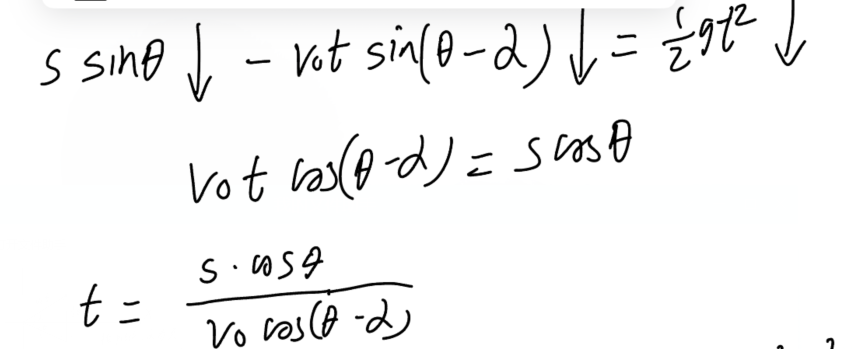 s sinθ ↓ - v₀t sin(θ-α) ↓ = ½gt² ↓
v₀t cos(θ-α) = s cosθ
t = s·cosθ / v₀ cos(θ-α)